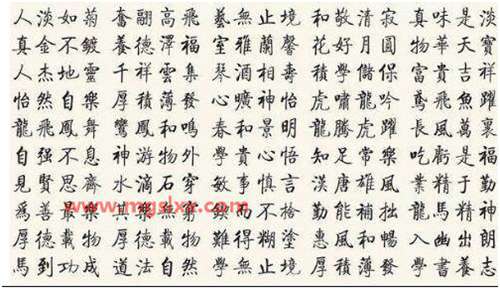 人淡如菊 奮翮高飛 藝無止境 和敬清寂 真味是淡
真金不鍍 養德澤福 室雅蘭馨 花好月圓 物華天寶
人杰地靈 千祥雲集 琴 相壽 積學儲 富貴吉祥
怡然自樂 厚積薄發 曠神怡 虎嘯龍吟 鳶飛魚躍
龍飛鳳舞 鸞鳳和鳴 春和景明 龍騰虎躍 長風萬裏
自强不息 神游物外 學貴心悟 知足常樂 吃虧是福
見賢思齊 水滴石穿 敏事慎言 漢唐雄風 業精于勤
爲善最樂 其樂無窮 不 勤能補拙 龍馬精神
厚德載物 厚德載物 難得糊塗 惠風和暢 入幽出朗
馬到功成 道法自然 學無止境 厚積薄發 學書養志
www.mgslxz.com